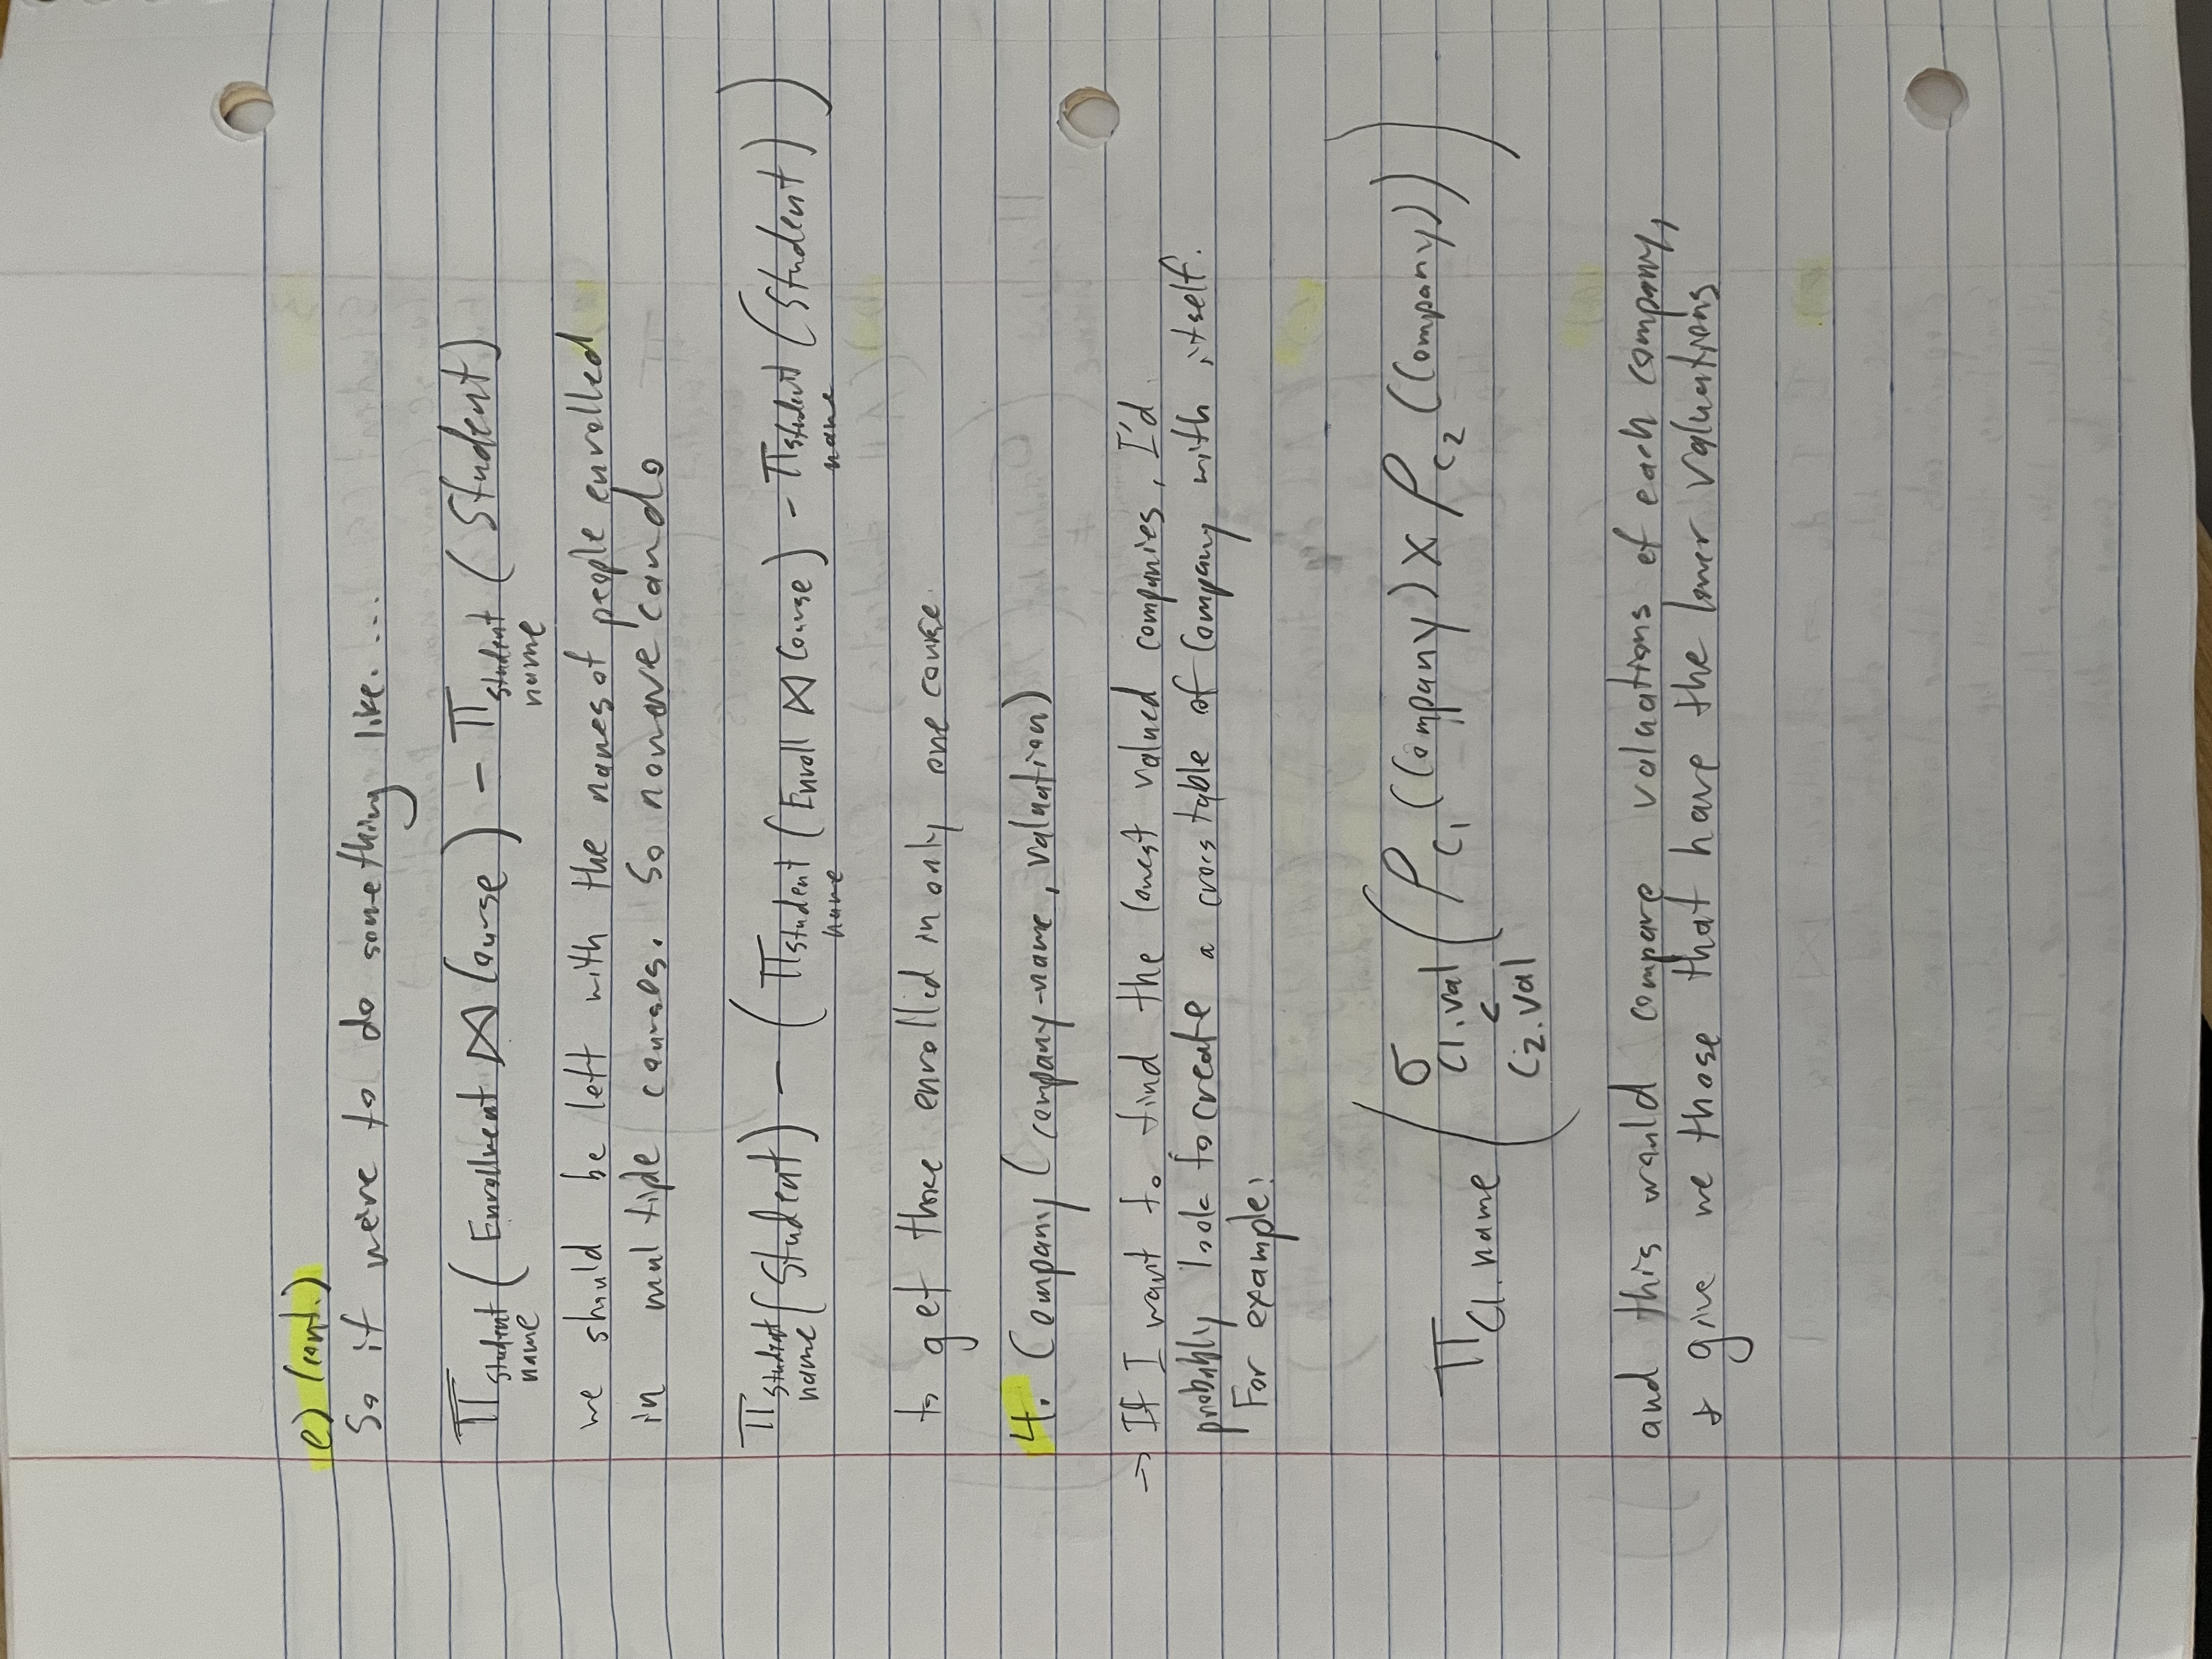 e) (cont.)
So if we're to do something like....
π student name (Enrollment ⋈ Course) - π student name (Student)
we should be left with the names of people enrolled
in multiple courses. So now we can do
π student name (Student) - (π student name (Enroll ⋈ Course) - π student name (Student))
to get those enrolled in only one course.
4. Company (company-name, valuation)
→ If I want to find the lowest valued companies, I'd
probably look to create a cross table of Company with itself.
For example:
π C1.name (σ C1.val < C2.val (ρ C1 (Company) X ρ C2 (Company)))
and this would compare valuations of each company,
& give me those that have the lower valuations